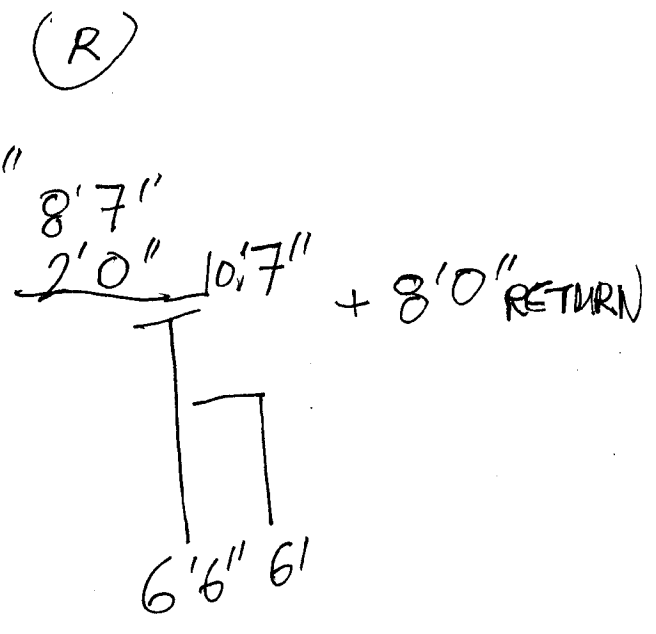 R
"
8'7"
2'0" 10'7" + 8'0" RETURN
6'6" 6'